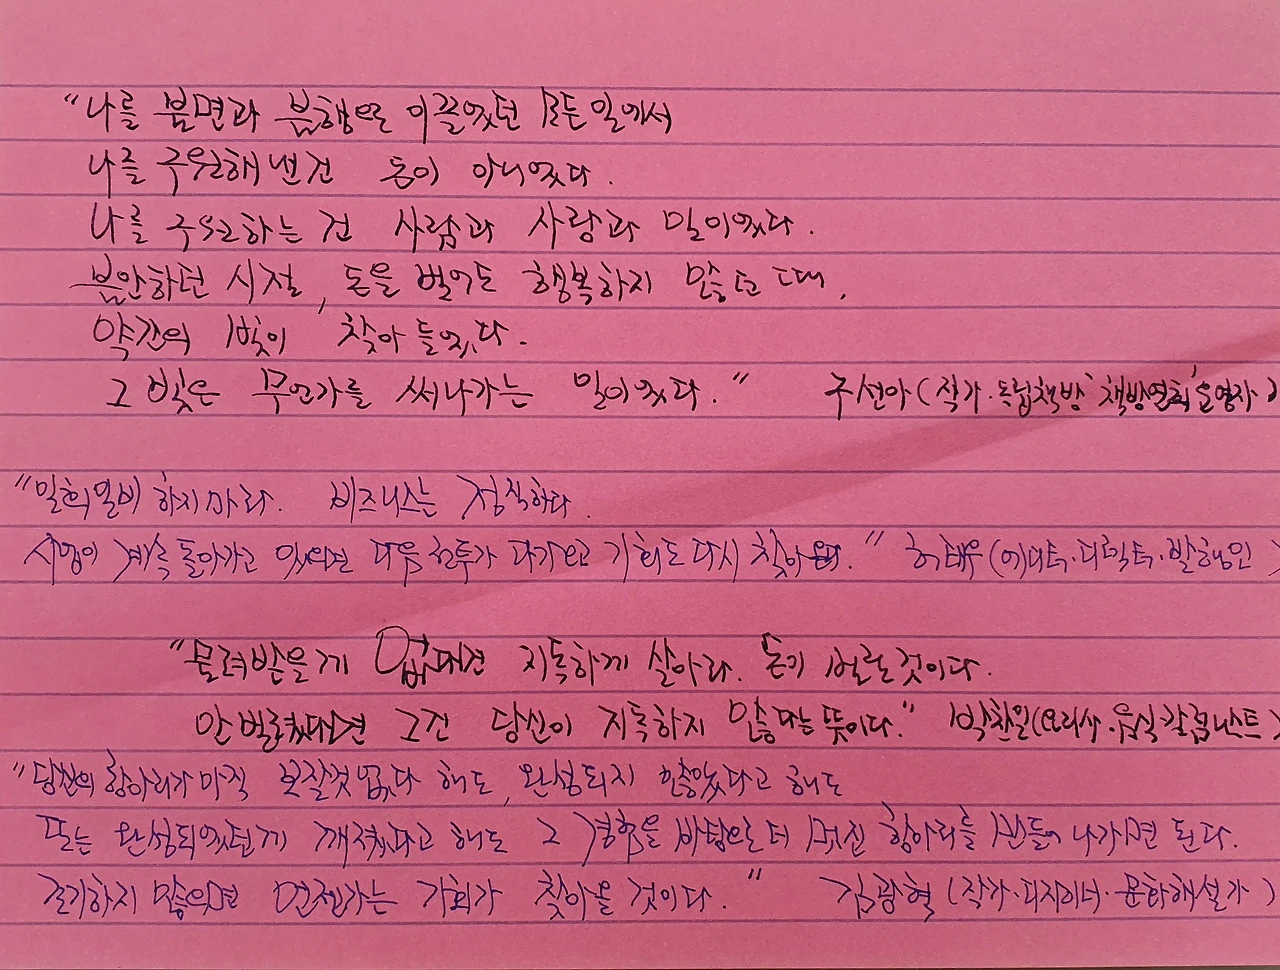 "나를 불면과 불행으로 이끌었던 모든 일에서
나를 구원해 낸 건 돈이 아니었다.
나를 구원하는 건 사람과 사랑과 일이었다.
불안하던 시절, 돈을 벌어도 행복하지 않던 때,
약간의 빛이 찾아 들었다.
그 빛은 무언가를 써나가는 일이었다." 구선아(작가·독립책방 '책방연희' 운영자)
"일희일비 하지마라. 비즈니스는 정직하다.
사업이 계속 돌아가고 있으면 다음 전투가 다가오고 기회도 다시 찾아온다." 허태우(에디터·디렉터·발행인)
"물려받은게 없다면 지독하게 살아라. 돈이 벌릴것이다.
안 벌렸다면 그건 당신이 지독하지 않다는 뜻이다." 박찬일(요리사·음식칼럼니스트)
"당신의 항아리가 아직 보잘것 없다 해도, 완성되지 않았다고 해도
또는 완성되었던게 깨졌다고 해도 그 경험을 바탕으로 더 멋진 항아리를 만들어 나가면 된다.
포기하지 않으면 언젠가는 기회가 찾아올 것이다." 김광혁(작가·디자이너·문화해설가)